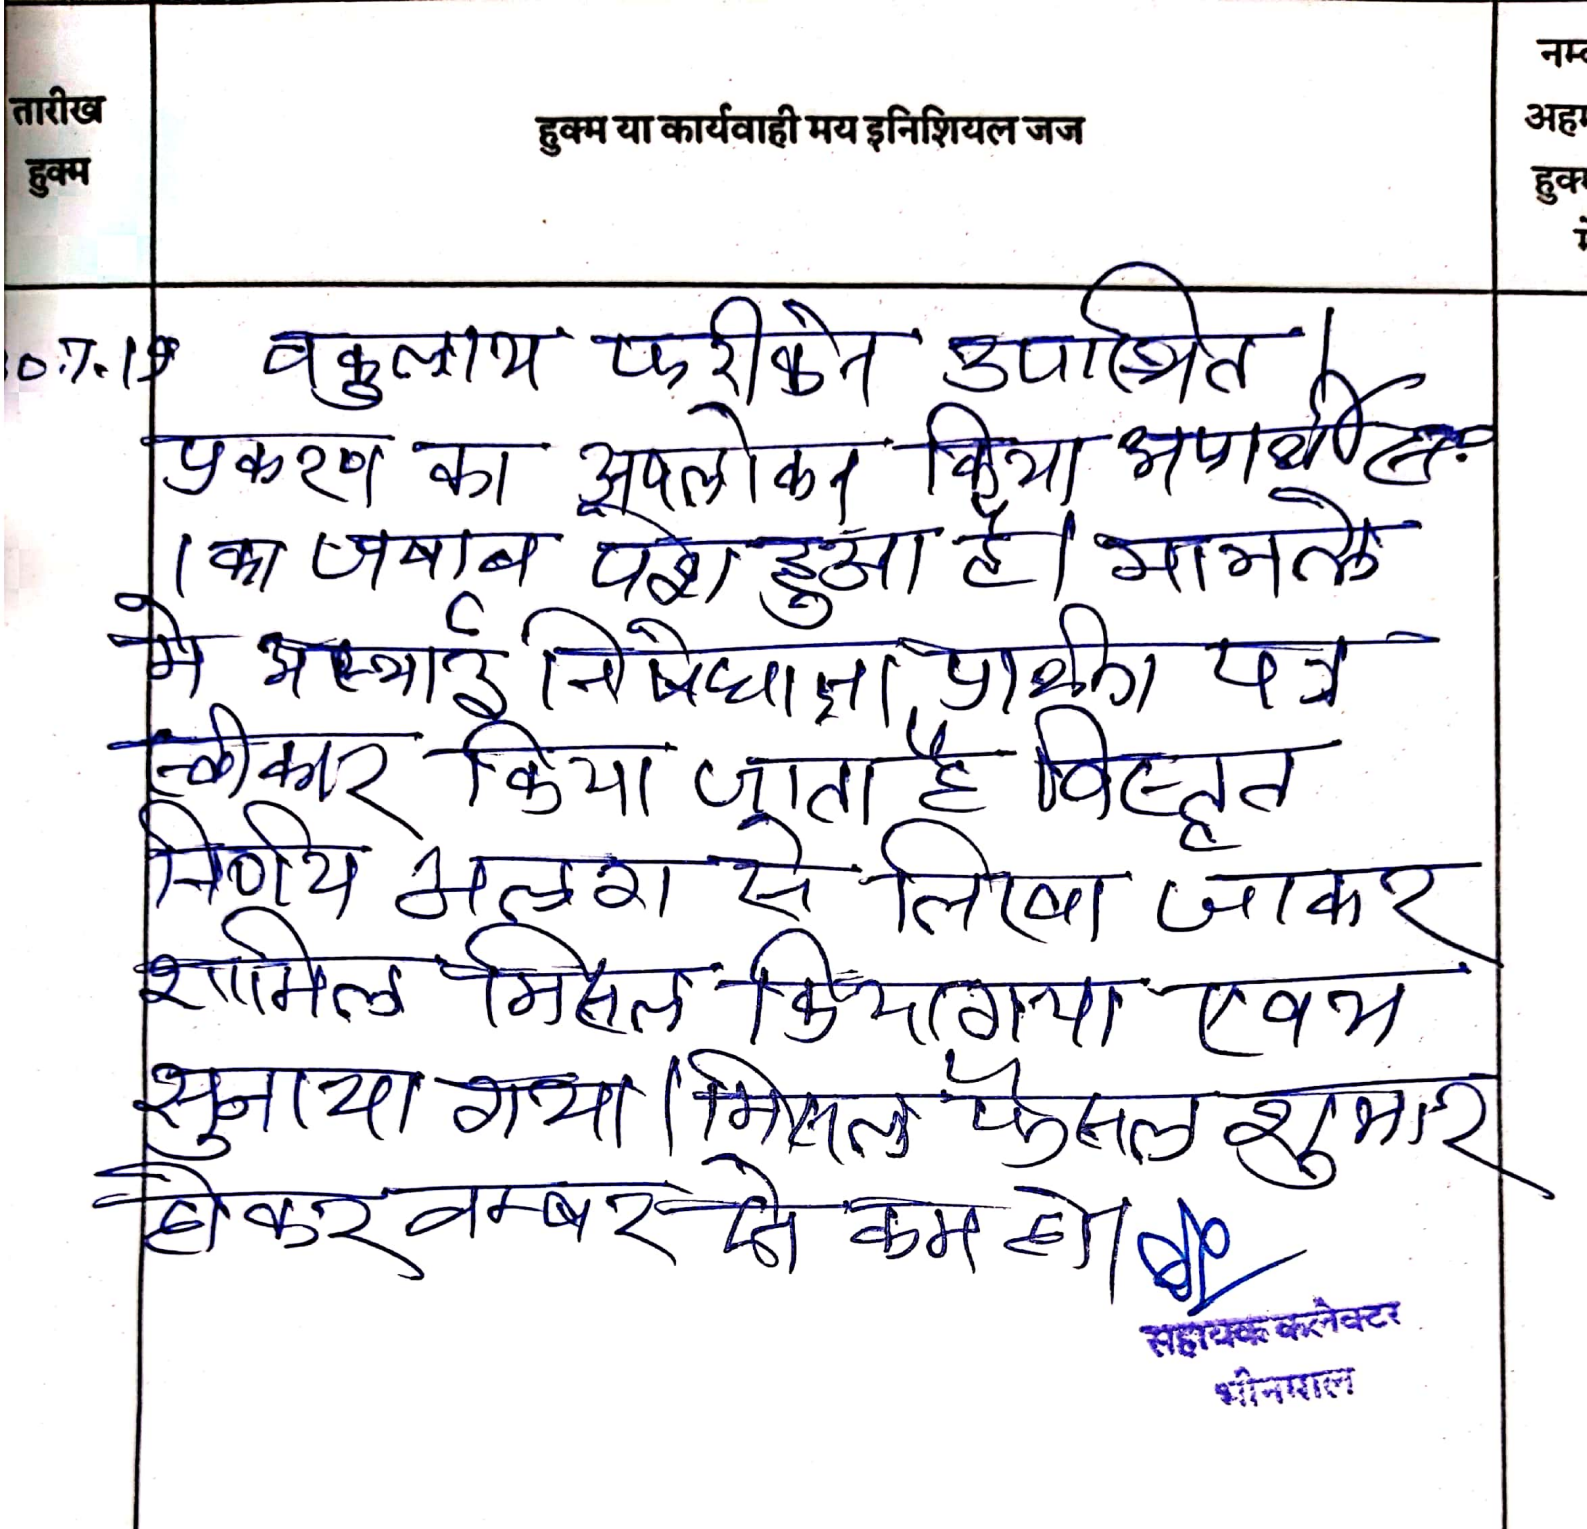 तारीख
हुक्म
हुक्म या कार्यवाही मय इनिशियल जज
नम्ब
अहम
हुक्म
में
10.7.19 वकुलाय फरीकेन उपस्थित।
प्रकरण का अवलोकन किया अप्रार्थी सं.
1 का जवाब पेश हुआ है। मामले
मे अस्थाई निषेधाज्ञा प्रार्थना पत्र
स्वीकार किया जाता है विस्तृत
निर्णय अलग से लिखा जाकर
शामिल मिसल किया गया एवम
सुनाया गया। मिसल फैसल शुमार
होकर नम्बर से कम हो।
सहायक कलेक्टर
भीनमाल